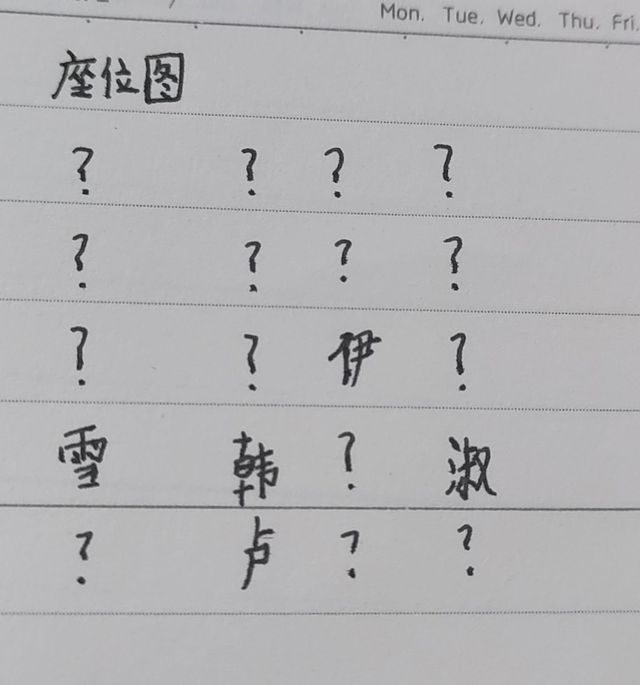 Mon. Tue. Wed. Thu. Fri.
座位图
? ? ? ?
? ? ? ?
? ? 伊 ?
雪 韩 ? 淑
? 卢 ? ?